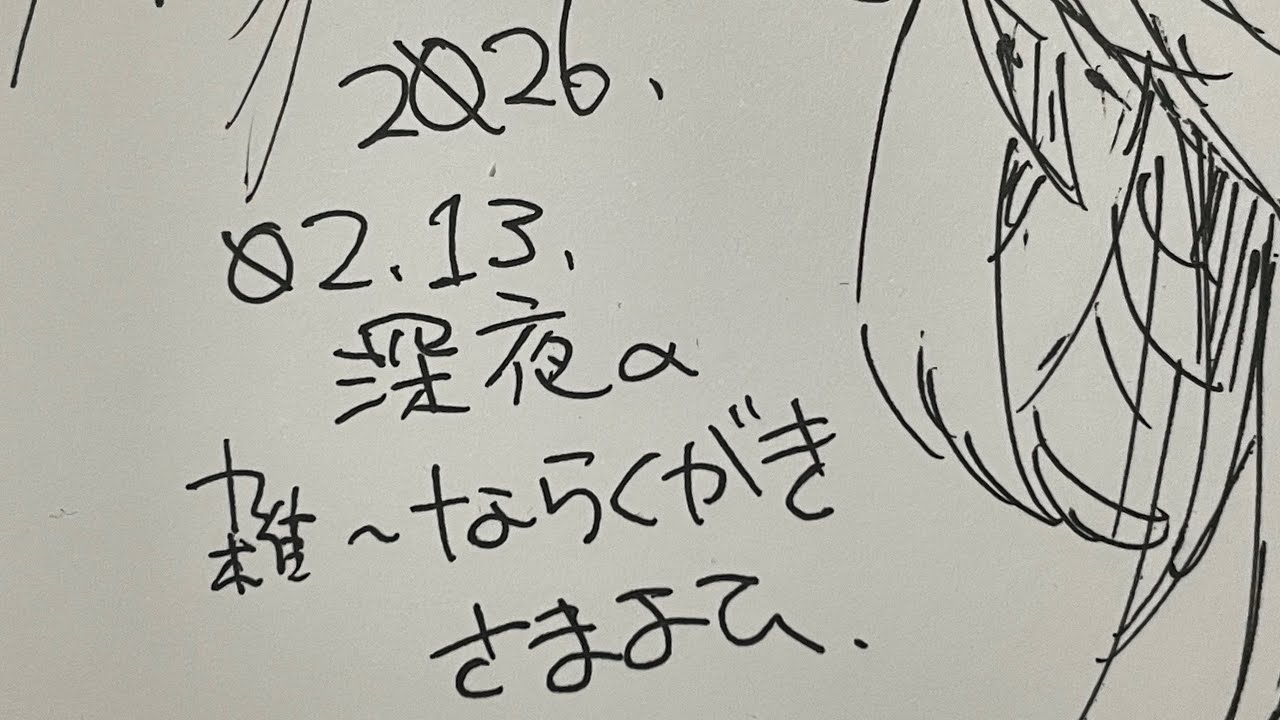 2026.
02.13.
深夜の
雑〜ならくがき
さまよひ.